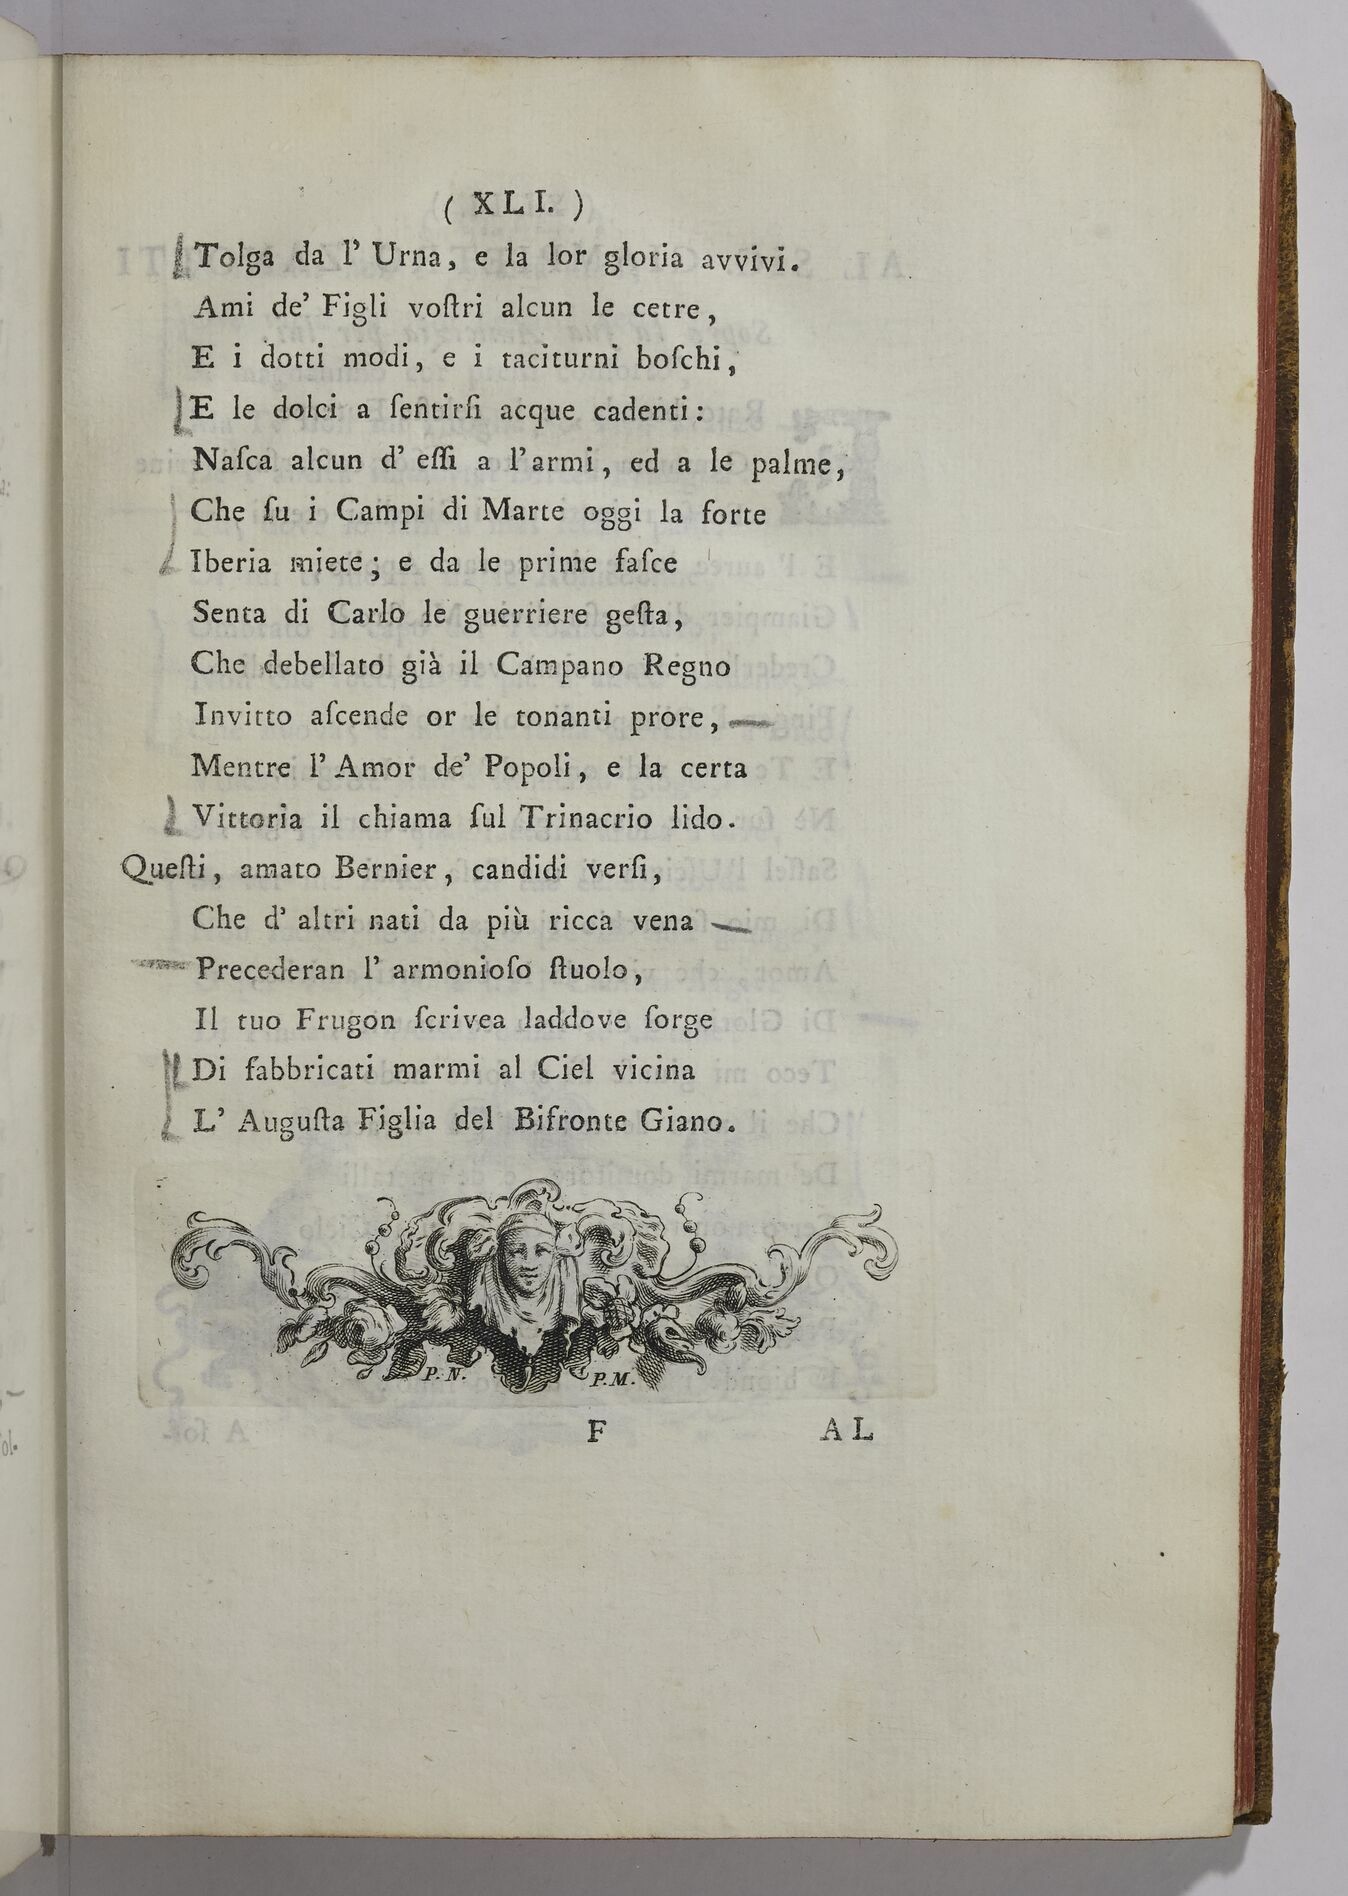 ( XLI. )
Tolga da l' Urna, e la lor gloria avvivi.
Ami de' Figli voſtri alcun le cetre,
E i dotti modi, e i taciturni boſchi,
E le dolci a ſentirſi acque cadenti:
Naſca alcun d' eſſi a l'armi, ed a le palme,
Che ſu i Campi di Marte oggi la forte
Iberia miete; e da le prime faſce
Senta di Carlo le guerriere geſta,
Che debellato già il Campano Regno
Invitto aſcende or le tonanti prore,
Mentre l' Amor de' Popoli, e la certa
Vittoria il chiama ſul Trinacrio lido.
Queſti, amato Bernier, candidi verſi,
Che d' altri nati da più ricca vena
Precederan l' armonioſo ſtuolo,
Il tuo Frugon ſcrivea laddove ſorge
Di fabbricati marmi al Ciel vicina
L' Auguſta Figlia del Bifronte Giano.
P. N. P. M.
F AL